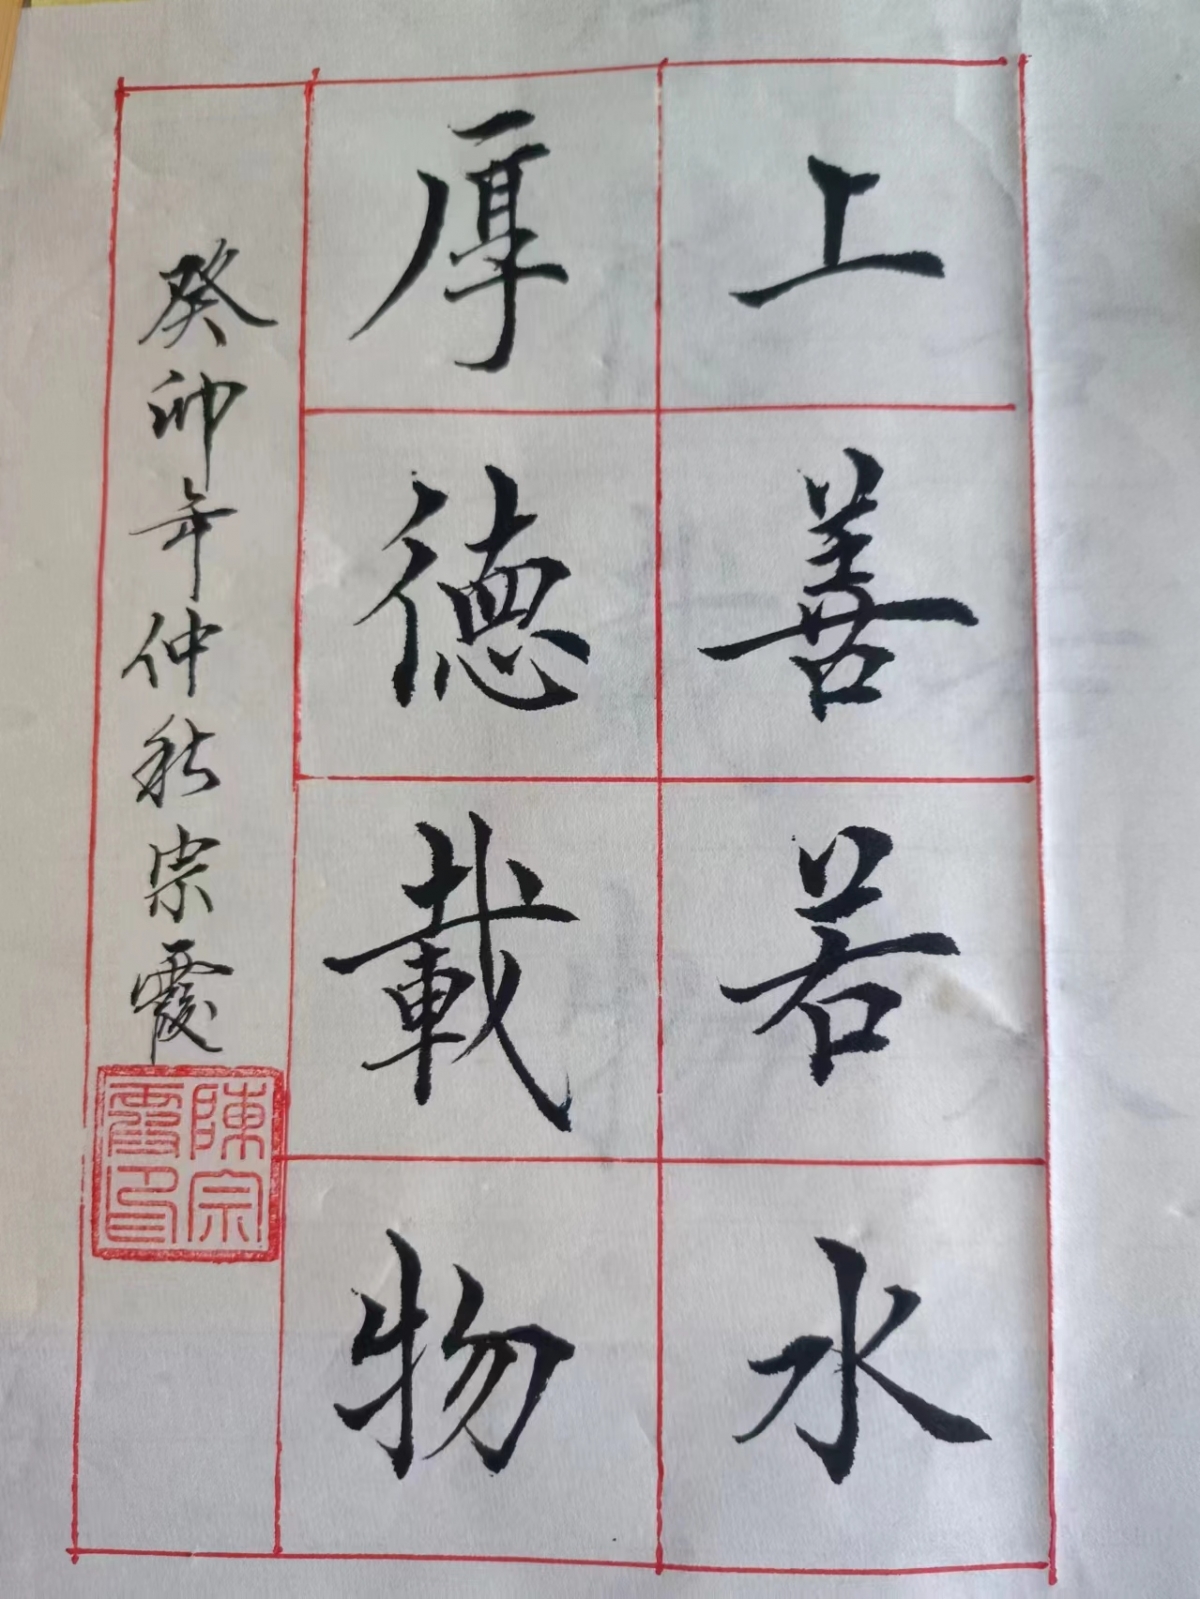 上善若水
厚德載物
癸卯年仲秋宗霞
陳宗霞印